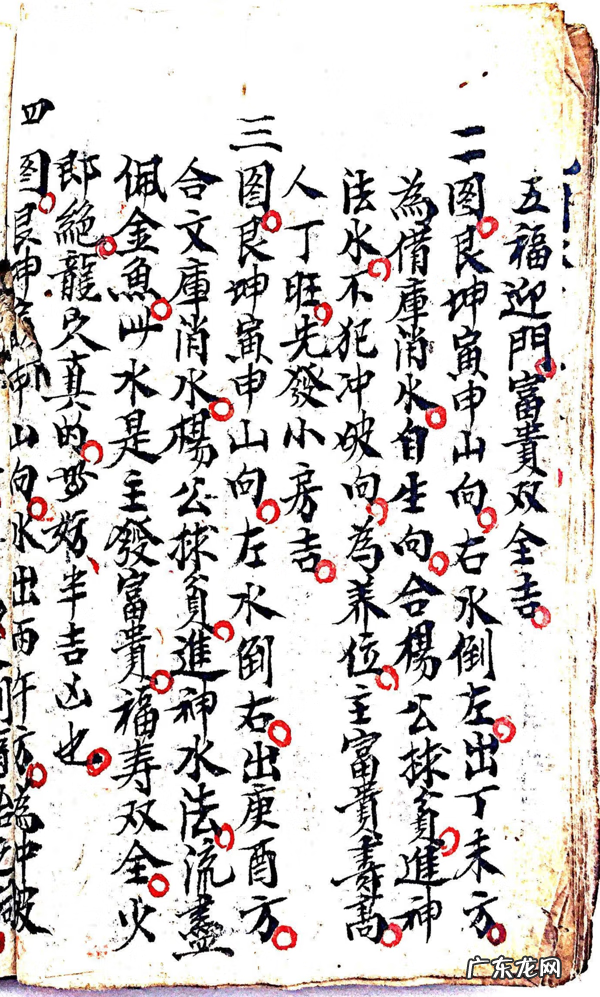 五福迎門富貴双全吉
二图艮坤寅申山向右水倒左出丁未方
為借庫消水自生向合楊公捄貧進神
法水不犯冲破向為养位主富貴壽高
人丁旺先發小房吉
三图艮坤寅申山向左水倒右出庚酉方
合文庫消水楊公捄貧進神水法流盡
佩金魚此水是主發富貴福寿双全火
郎絕龍灾真的妙好半吉凶也
四图艮坤寅申山向水出丙午方為冲破
广东龙网